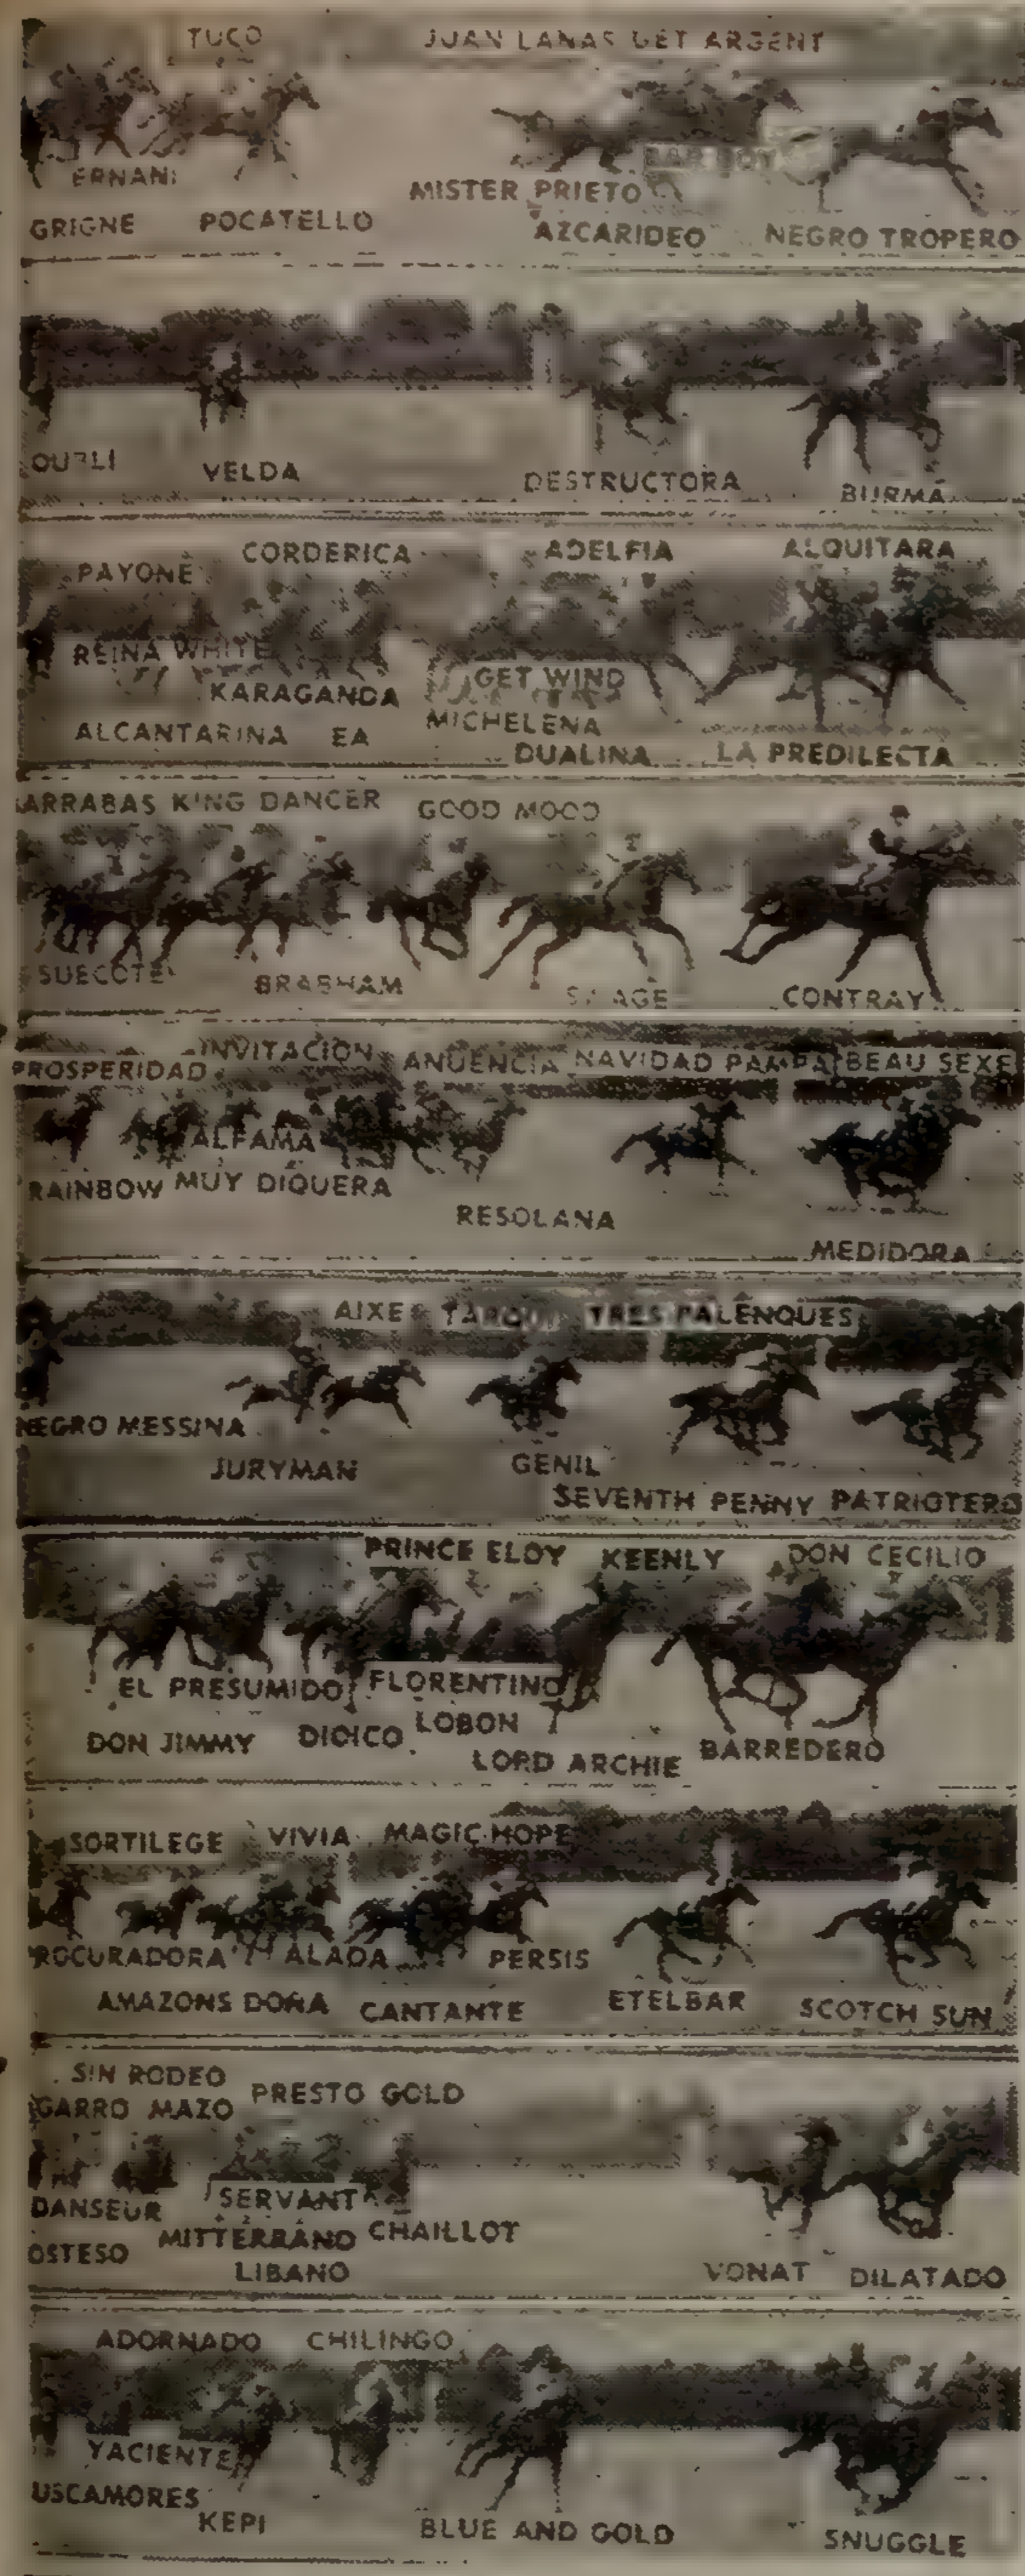 TUCO JUAN LANAS GET ARGENT
ERNANI BAR BOY
MISTER PRIETO
GRIGNE POCATELLO AZCARIDEO NEGRO TROPERO
VELDA DESTRUCTORA BURMA
CORDERICA ADELFIA ALQUITARA
PAYONE
REINA WHITE GET WIND
KARAGANDA
ALCANTARINA EA MICHELENA
DUALINA LA PREDILECTA
ARRABAS KING DANCER GOOD MOOD
SUECOTE BRABHAM CONTRAY
INVITACION ANUENCIA NAVIDAD PAMPA BEAU SEXE
PROSPERIDAD
ALFAMA
RAINBOW MUY DIQUERA
RESOLANA
MEDIDORA
AIXE TRES PALENQUES
NEGRO MESSINA
JURYMAN GENIL
SEVENTH PENNY PATRIOTERO
PRINCE ELOY KEENLY DON CECILIO
EL PRESUMIDO FLORENTINO
DON JIMMY DIOICO LOBON
LORD ARCHIE BARREDERO
SORTILEGE VIVIA MAGIC HOPE
ROCURADORA ALADA PERSIS
AMAZONS DORA CANTANTE ETELBAR SCOTCH SUN
SIN RODEO PRESTO GOLD
GARRO MAZO
DANSEUR SERVANT
OSTESO MITTERRAND CHAILLOT
LIBANO VONAT DILATADO
ADORNADO CHILINGO
YACIENTE
USCAMORES
KEPI BLUE AND GOLD SNUGGLE